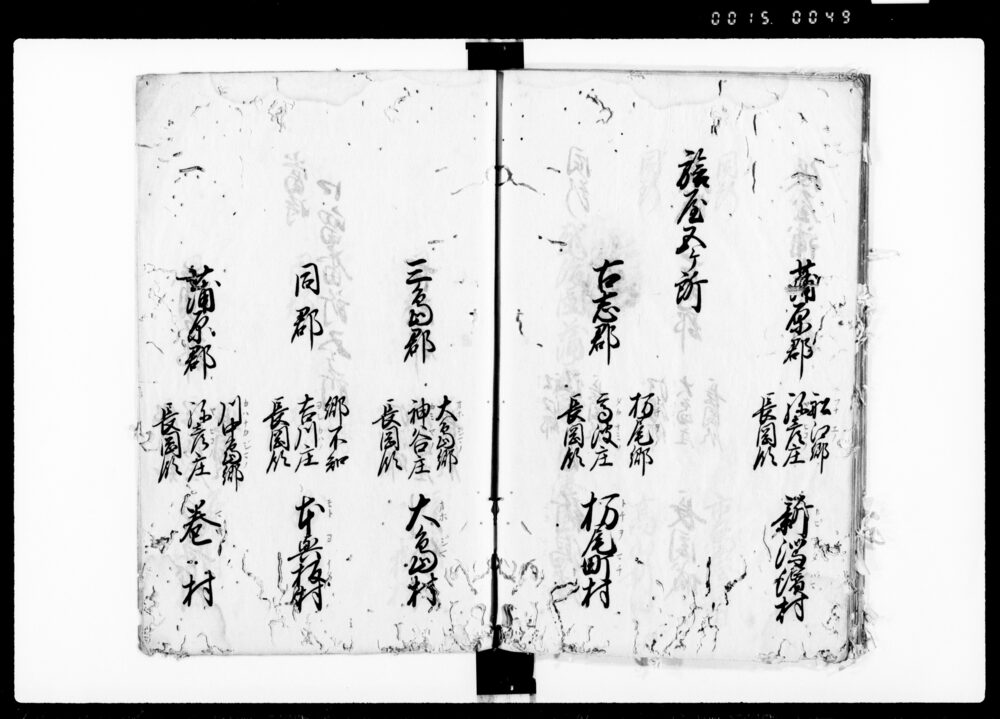 0015 0049
蒲原郡
船江郷
弥彦庄
長岡領
新潟濱村
旅屋五ヶ所
古志郡
栃尾郷
高波庄
長岡領
栃尾町村
三島郡
大島郷
神谷庄
長岡領
大島村
同郡
郷不知
吉川庄
長岡領
本与板村
蒲原郡
川中島郷
弥彦庄
長岡領
巻村